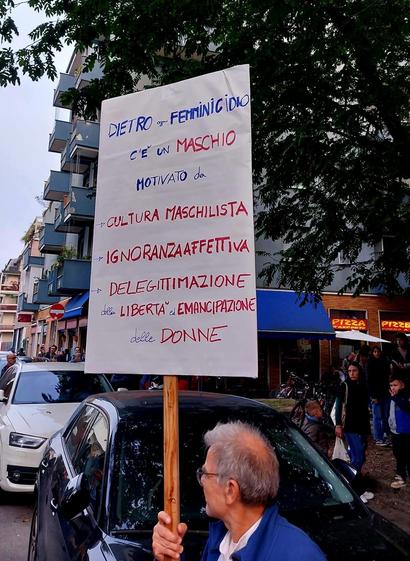 DIETRO ogni FEMMINICIDIO
C'E' UN MASCHIO
MOTIVATO da
- CULTURA MASCHILISTA
- IGNORANZA AFFETTIVA
- DELEGITTIMAZIONE
della LIBERTA' ed EMANCIPAZIONE
delle DONNE
PIZZA
PIZZA